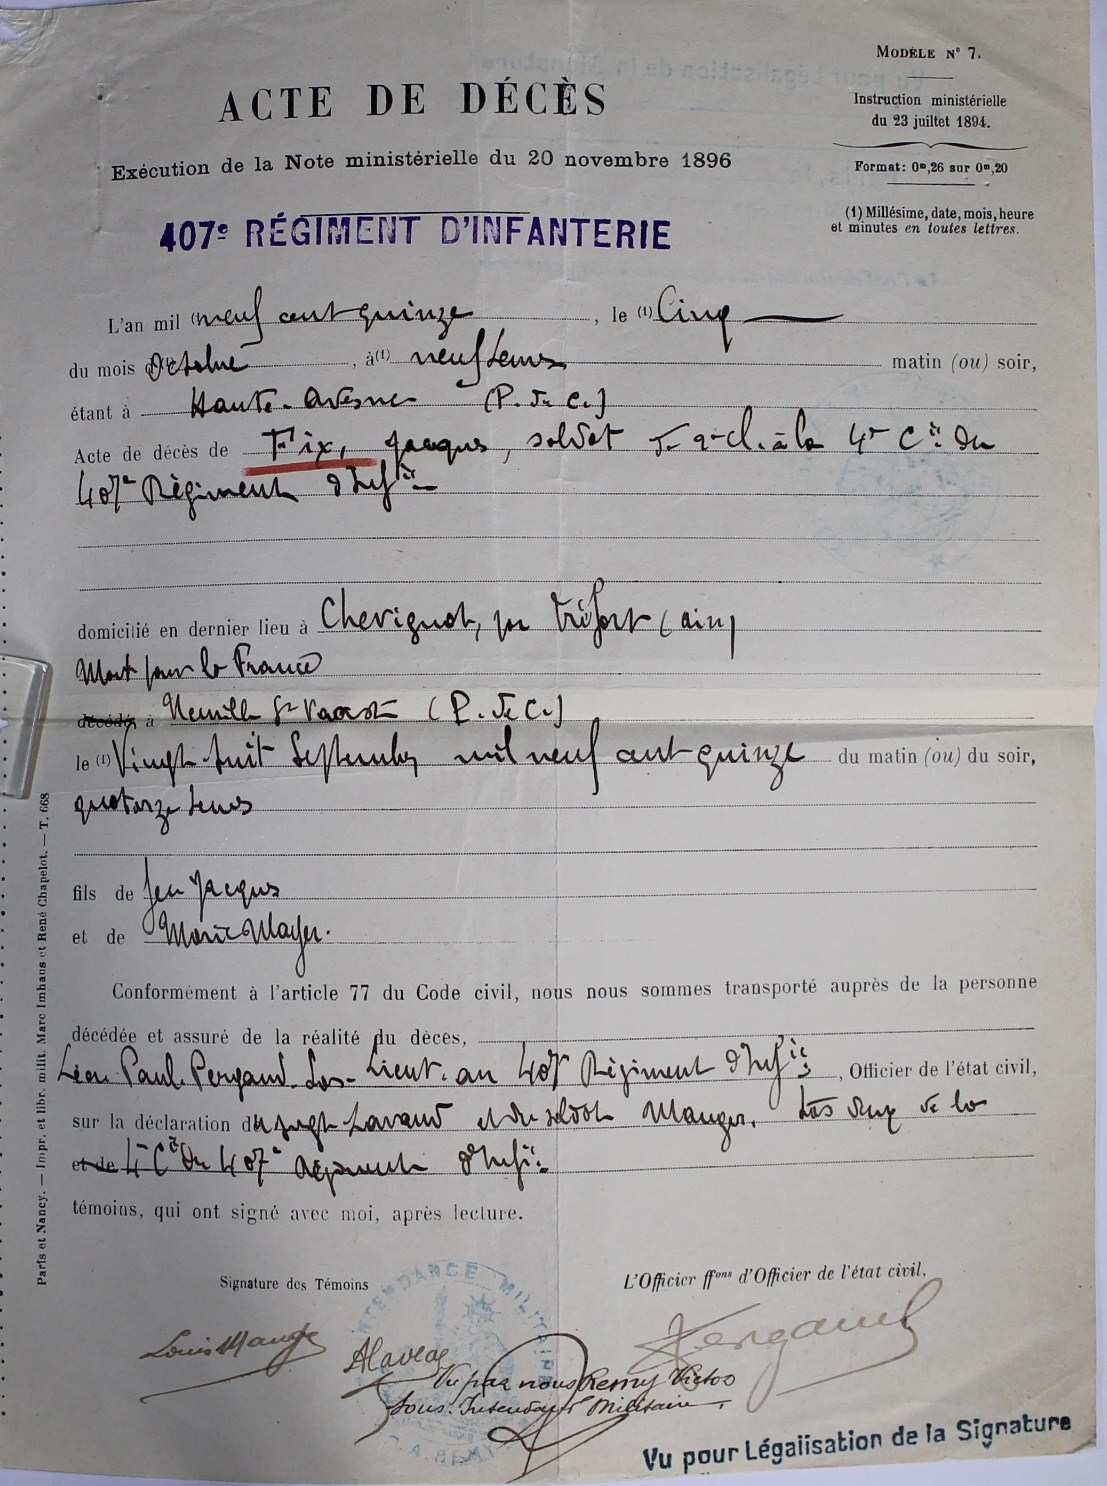 MODÈLE N° 7.
Instruction ministérielle
du 23 juiltet 1894.
Format: 0m,26 sur 0m,20
(1) Millésime, date, mois, heure
et minutes en toutes lettres.
ACTE DE DÉCÈS
Exécution de la Note ministérielle du 20 novembre 1896
407e RÉGIMENT D'INFANTERIE
L'an mil (1) neuf cent quinze, le (1) Cinq
du mois d'octobre, à (1) neuf heures matin (ou) soir,
étant à Haute-Avesnes (P. de C.)
Acte de décès de Fix, Jacques, soldat de 2e cl. à la 4e Cie du
407e Régiment d'Infie
domicilié en dernier lieu à Chevignat, par Tréfort (ain)
Mort pour la France
décédé à Neuville St Vaast (P. de C.)
le (1) Vingt-huit Septembre mil neuf cent quinze du matin (ou) du soir,
quatorze heures
fils de Jean Jacques
et de Marie Mayer.
Conformément à l'article 77 du Code civil, nous nous sommes transporté auprès de la personne
décédée et assuré de la réalité du décès,
Léon Paul Pergaud Sous-Lieut. au 407e Régiment d'Infie, Officier de l'état civil,
sur la déclaration du Lavaud et du soldat Mauger. tous deux de la
et de 4e Cie du 407e Régiment d'Infie
témoins, qui ont signé avec moi, après lecture.
Signature des Témoins
L'Officier ffons d'Officier de l'état civil.
Louis Mauge
Pergaud
Vu par nous Remy Victor
Sous-Intendant Militaire.
INTENDANCE MILITAIRE
Vu pour Légalisation de la Signature
Paris et Nancy. — Impr. et libr. milit. Marc Imhaus et René Chapelot. — T. 668